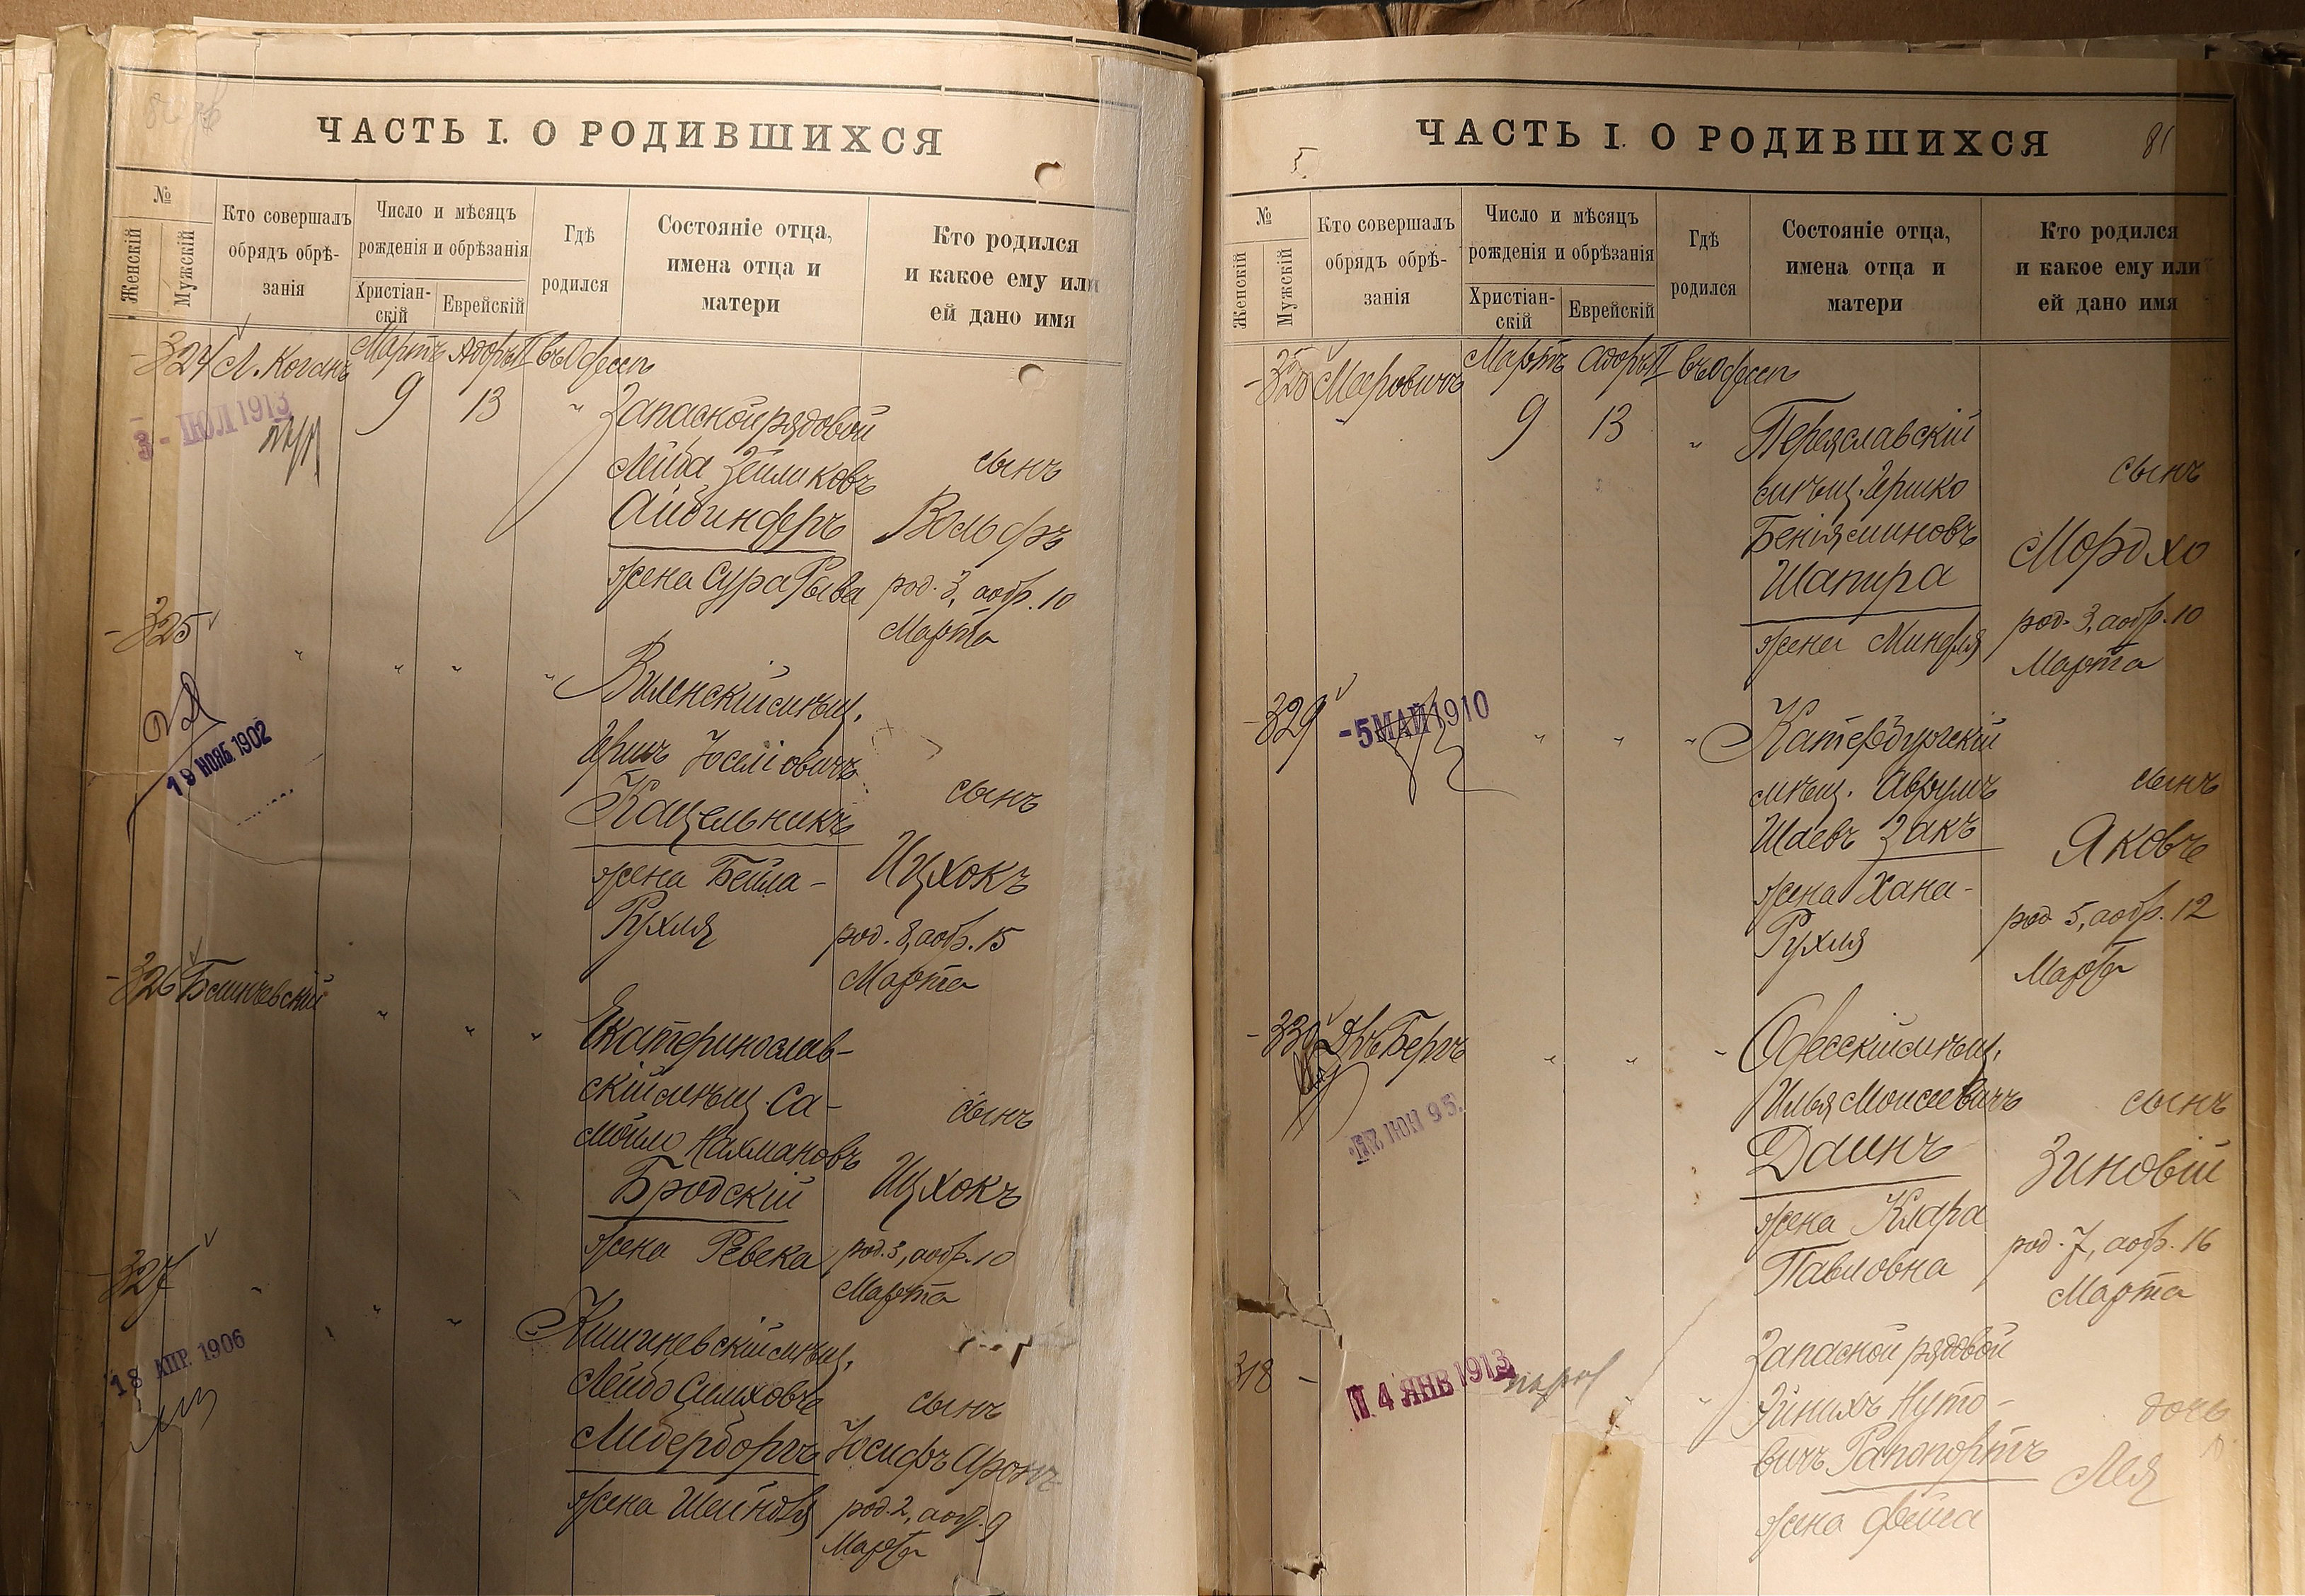 ЧАСТЬ I. О РОДИВШИХСЯ
№
Женскій
Мужскій
Кто совершалъ
обрядъ обрѣ-
занія
Число и мѣсяцъ
рожденія и обрѣзанія
Христіан-
скій
Еврейскій
Гдѣ
родился
Состояніе отца,
имена отца и
матери
Кто родился
и какое ему или
ей дано имя
324 Л. Коганъ Мартъ Адоръ II въ Одессѣ
9 13 "
3 - ІЮЛ 1913
Запасной рядовой
Лейба Зейликовъ
Айбиндеръ
жена Сура Рыва
сынъ
Вольфъ
род. 3, а обр. 10
Марта
325 " " " "
19 НОЯБ. 1902
Виленскій мѣщ.
Іосліовичъ
Кацельникъ
жена Бейла-
Рухля
сынъ
Ицхокъ
род. 8, а обр. 15
Марта
326 " " "
Екатеринослав-
скій мѣщ. Са-
мойло Нахмановъ
Бродскій
жена Ревека
сынъ
Ицхокъ
род. 3, а обр. 10
Марта
327 " " " "
18 АПР. 1906
Кишиневскій мѣщ.
Лейбо
Лидерборгъ
жена Шейндля
сынъ
Іосифъ Аронъ
род. 2, а обр. 9
Марта
ЧАСТЬ I. О РОДИВШИХСЯ
81
5.
№
Женскій
Мужскій
Кто совершалъ
обрядъ обрѣ-
занія
Число и мѣсяцъ
рожденія и обрѣзанія
Христіан-
скій
Еврейскій
Гдѣ
родился
Состояніе отца,
имена отца и
матери
Кто родился
и какое ему или
ей дано имя
Мееровичъ Мартъ Адоръ II въ Одессѣ
9 13 "
Переяславскій
мѣщ. Гершко
Беніяминовъ
Шапира
жена Миндля
сынъ
Мордхо
род. 3, а обр. 10
Марта
329 " " "
-5 МАЙ 1910
Катербургскій
мѣщ. Аврумъ
Шаевъ Закъ
жена Хана-
Рухля
сынъ
Яковъ
род 5, а обр. 12
Марта
330 Д-ръ Бергъ " " "
ІЮН 95.
Одесскій мѣщ.
Илья Моисеевичъ
Даинъ
жена Клара
Павловна
сынъ
Зиновій
род. 7, а обр. 16
Марта
318 -
4 ЯНВ 1913
Запасной рядовой
Нуто-
вичъ Рапопортъ
жена Фейга
дочь
Лея